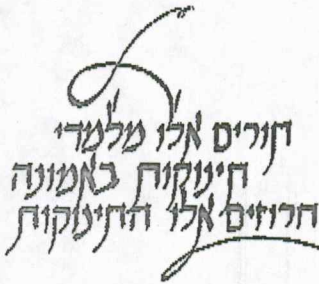 תורים אלו מלמדי
תינוקות באמונה
חרוזים אלו התינוקות